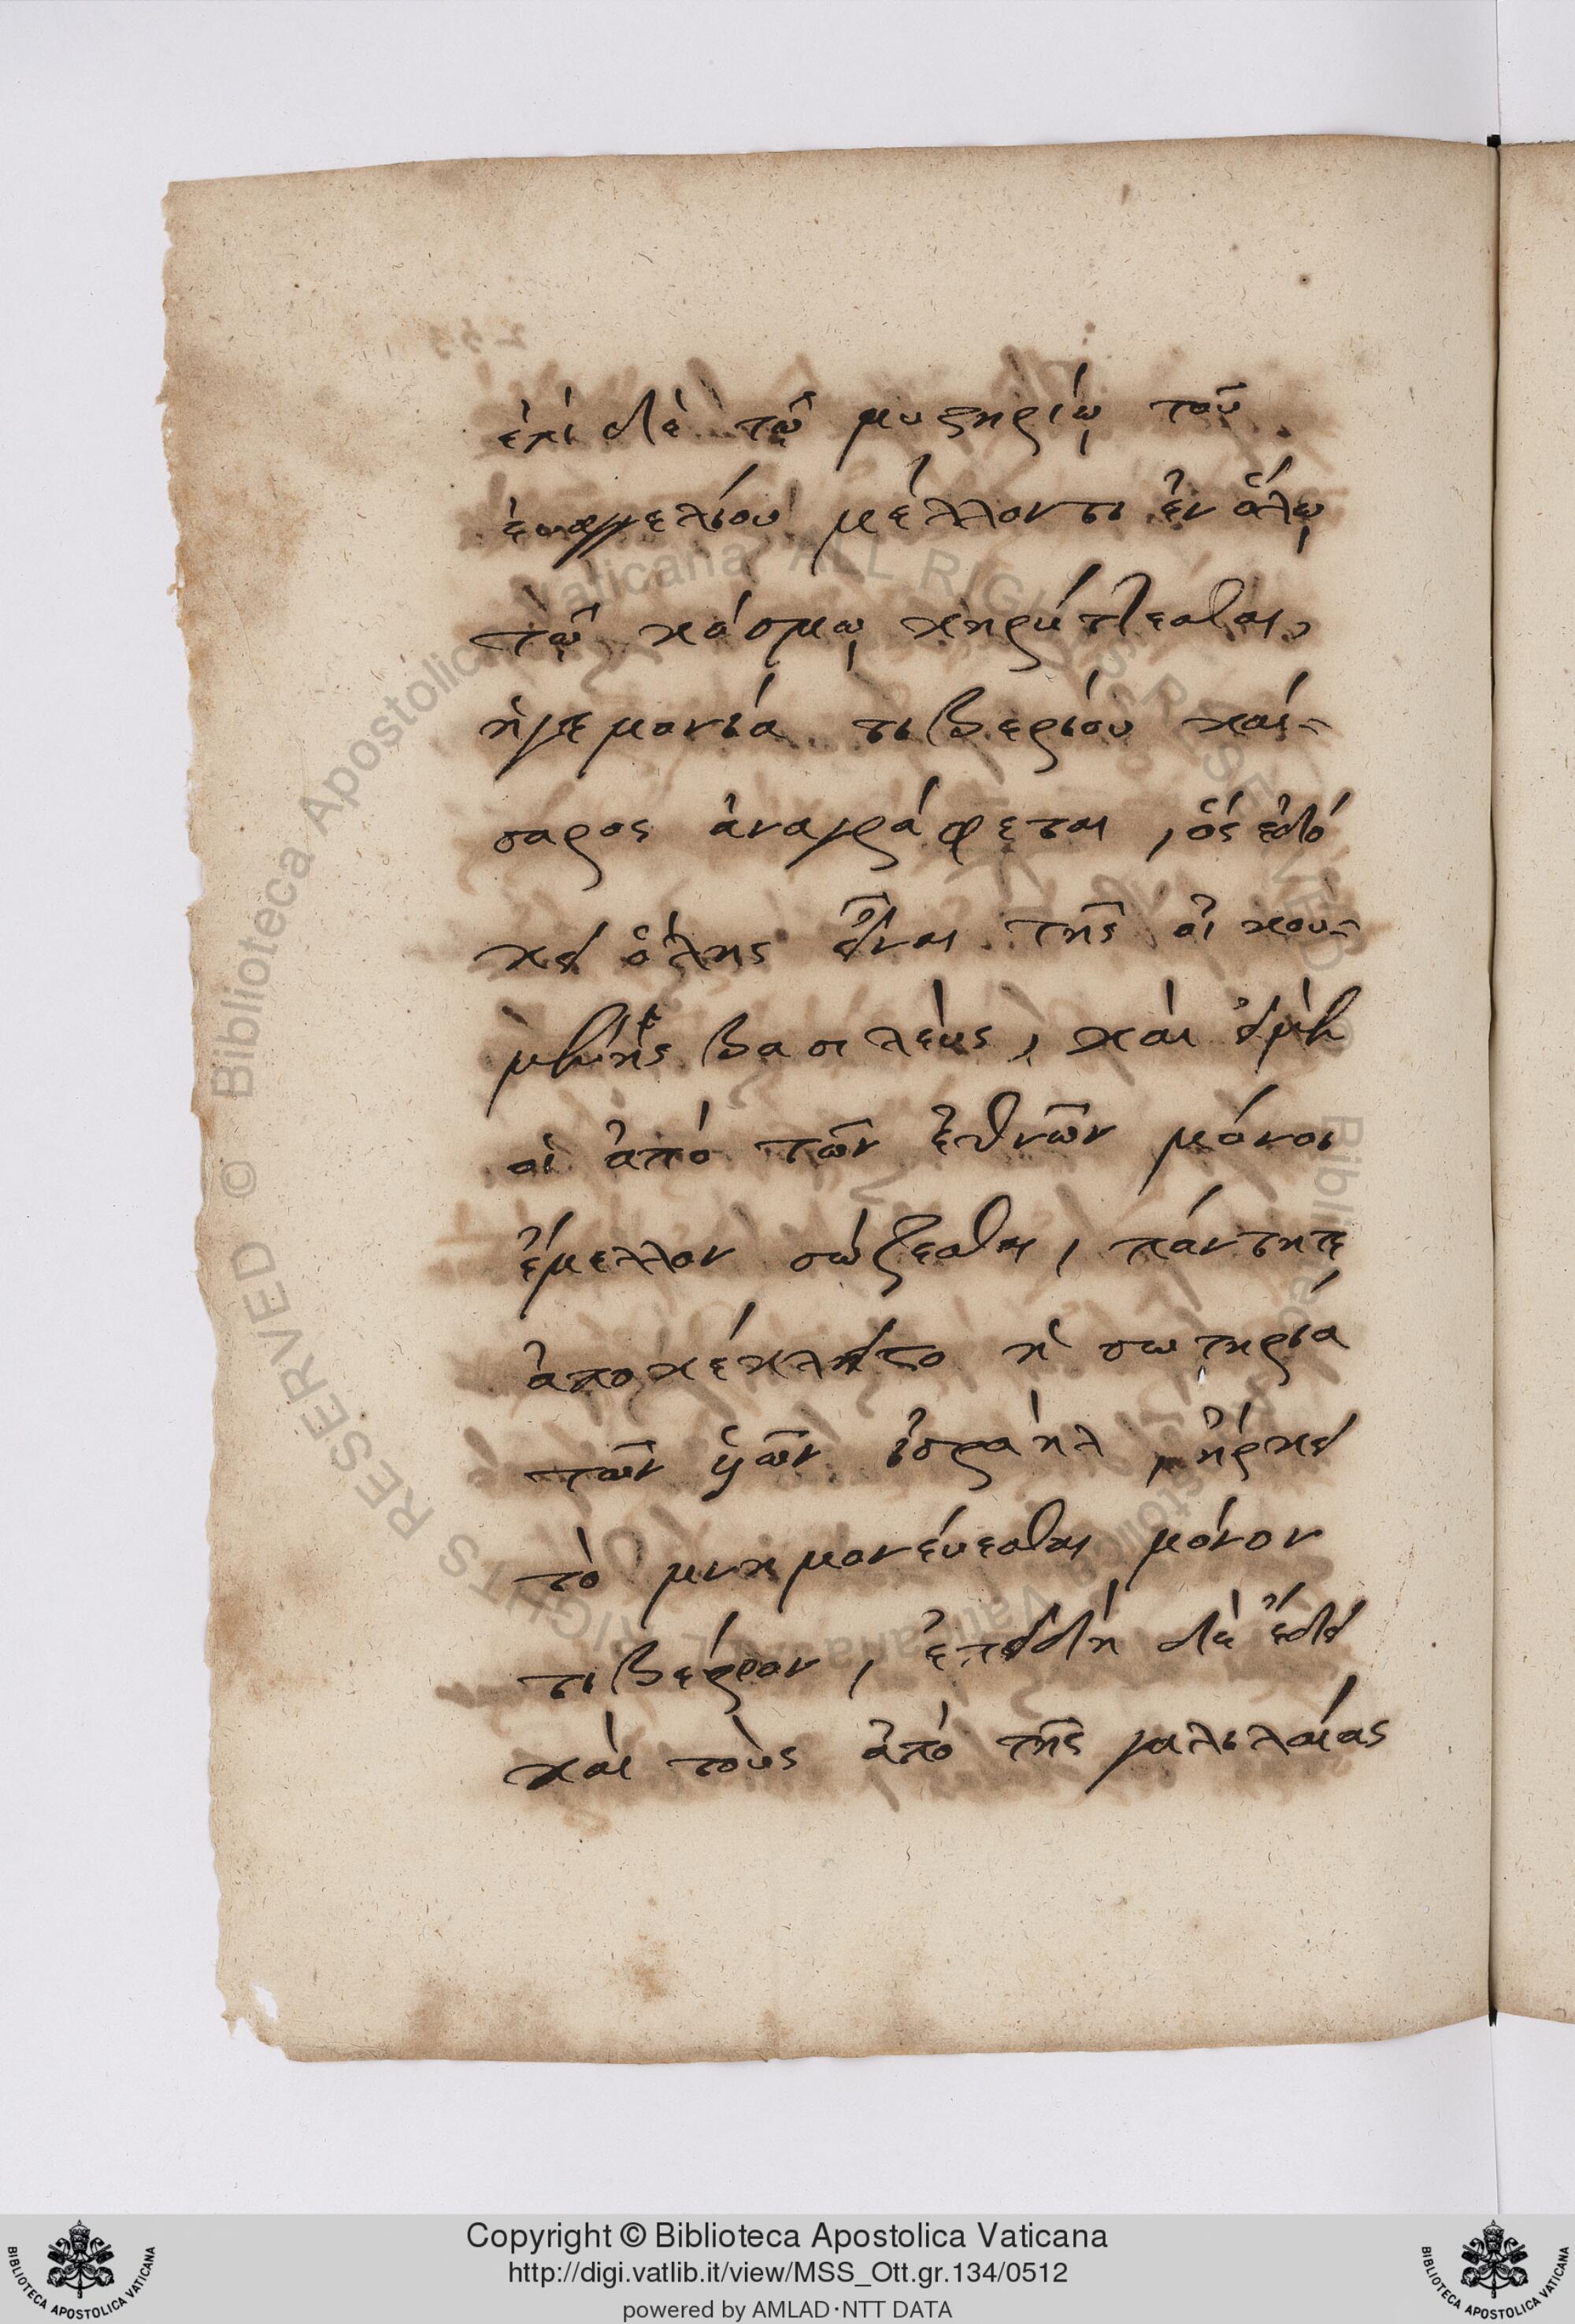 ἐπὶ δὲ τῷ μυστηρίῳ τοῦ
ἐυαγγελίου μέλλοντι ἐν ὅλῳ
τῷ κόσμῳ κηρύττεσθαι,
ἡγεμονία τιβερίου καί-
σαρος ἀναγράφεται, ὃς ἐδό
κει ὅλης εἶναι τῆς οἰκου-
μένης βασιλεὺς, καὶ εἰ μὲν
οἱ ἀπὸ τῶν ἐθνῶν μόνοι
ἔμελλον σώζεσθαι, πάντητε
ἀποκέκλειτο ἡ σωτηρία
τῶν ἐξ ὧν ἰσραὴλ, ἤρκει
τὸ μνημονεύεσθαι μόνον
τιβέριον, ἐπειδὴ δὲ ἔδει
καὶ τοὺς ἀπὸ τῆς γαλιλαίας
Copyright © Biblioteca Apostolica Vaticana
http://digi.vatlib.it/view/MSS_Ott.gr.134/0512
powered by AMLAD·NTT DATA
BIBLIOTECA APOSTOLICA VATICANA
BIBLIOTECA APOSTOLICA VATICANA